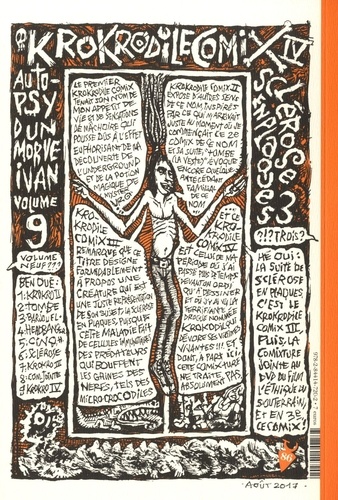 KROKRODILE COMIX IV
AUTO-
PSY
D'UN
MORT VI
VANT
VOLUME
9
SCLEROSE 3
EN PLAQUES
LE PREMIER
KROKRODILE COMIX
TENAIT SON NOM DE
MON APPÉTIT DE
VIE ET DE SENSATIONS
DE MÂCHOIRE QUI
POUSSE DÛS À L'EFFET
EUPHORISANT DE LA
DÉCOUVERTE DE
L'UNDERGROUND
ET DE LA POTION
MAGIQUE DE
MISTER
KROKRODILE COMIX II
EXPOSE D'AUTRES SENS
DE CE NOM INSPIRÉS
PAR CE QUI M'ARRIVAIT
JUSTE AU MOMENT OÙ JE
COMMENÇAIT CE 2E
COMIX DE CE NOM
ET SA SUITE "TOMBE
(LA VESTE)" ÉVOQUE
ENCORE QUELQUE
ANTÉCÉDANT
FAMILIAL
DE CE
NOM!
KRO
KRODILE
COMIX III
REMARQUE QUE CE
TITRE DÉSIGNE
FORMIDABLEMENT
À PROPOS UNE
CRÉATURE QUI EST
UNE JUSTE REPRÉSENTATION
DE SON SUJET: LA SCLÉROSE
EN PLAQUES, PUISQUE
CETTE MALADIE FAIT
DES CELLULES IMMUNITAIRES
DES PRÉDATEURS
QUI BOUFFENT
LES GAINES DES
NERFS, TELS DES
MICRO CROCODILES
ET CE
KROKRO-
DILE
COMIX IV
EST CELUI DE MA
PÉRIODE OÙ J'AI
PASSÉ PEU DE TEMPS
DEVANT MON ORDI
QU'À DESSINER
ET OÙ J'AI VU LA
TERRIFIANTE
DROGUE NOMMÉE
KROKODIL
DÉVORER SES VICTIMES
VIVANTES!!! ET
DONT, À PART ICI,
CETTE COMIXTURE
NE TRAITE PAS
ABSOLUMENT
?!?TROIS?
VOLUME
NEUF???
BEN OUÉ:
1: KROKRO II
2= TOMBE
4: HEADBANGER
5= CINQ
6: SCLÉROSE
7: KROKRO III
9= KROKRO IV
HÉ OUI: LA
SUITE DE
SCLÉROSE
ET PLAQUES,
C'EST LE
KROKRODILE
COMIX III,
PUIS LA
COMIXTURE
JOINTE AU
DVD DU FILM
L'ÉTHIQUE DU
SOUTERRAIN,
ET EN 3E,
CE COMIX!
86
AOÛT 2017